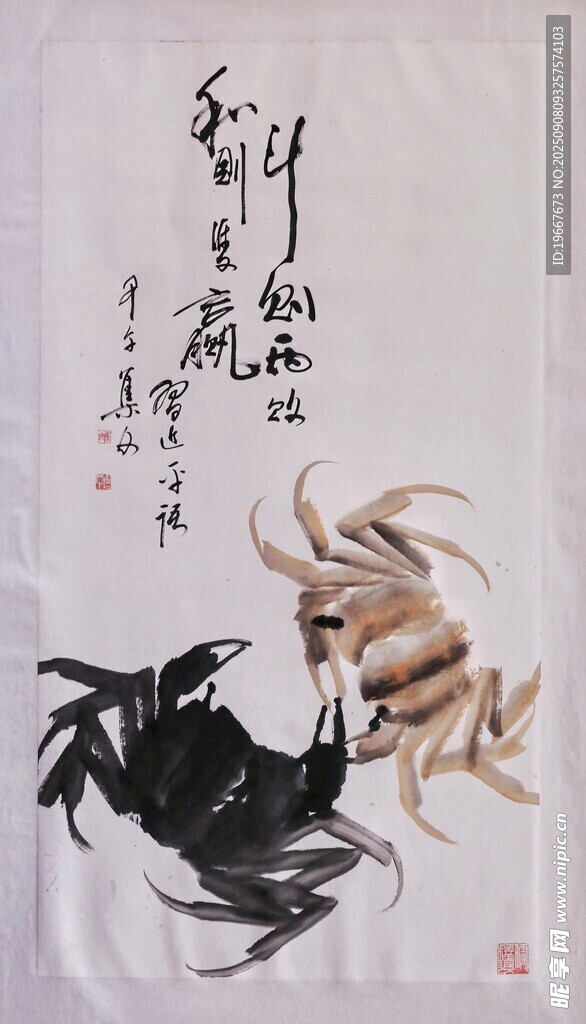 斗则两败
和则双赢
习近平语
甲午集文
ID:19667673 NO:20250908093257574103
昵享网 www.nipic.cn